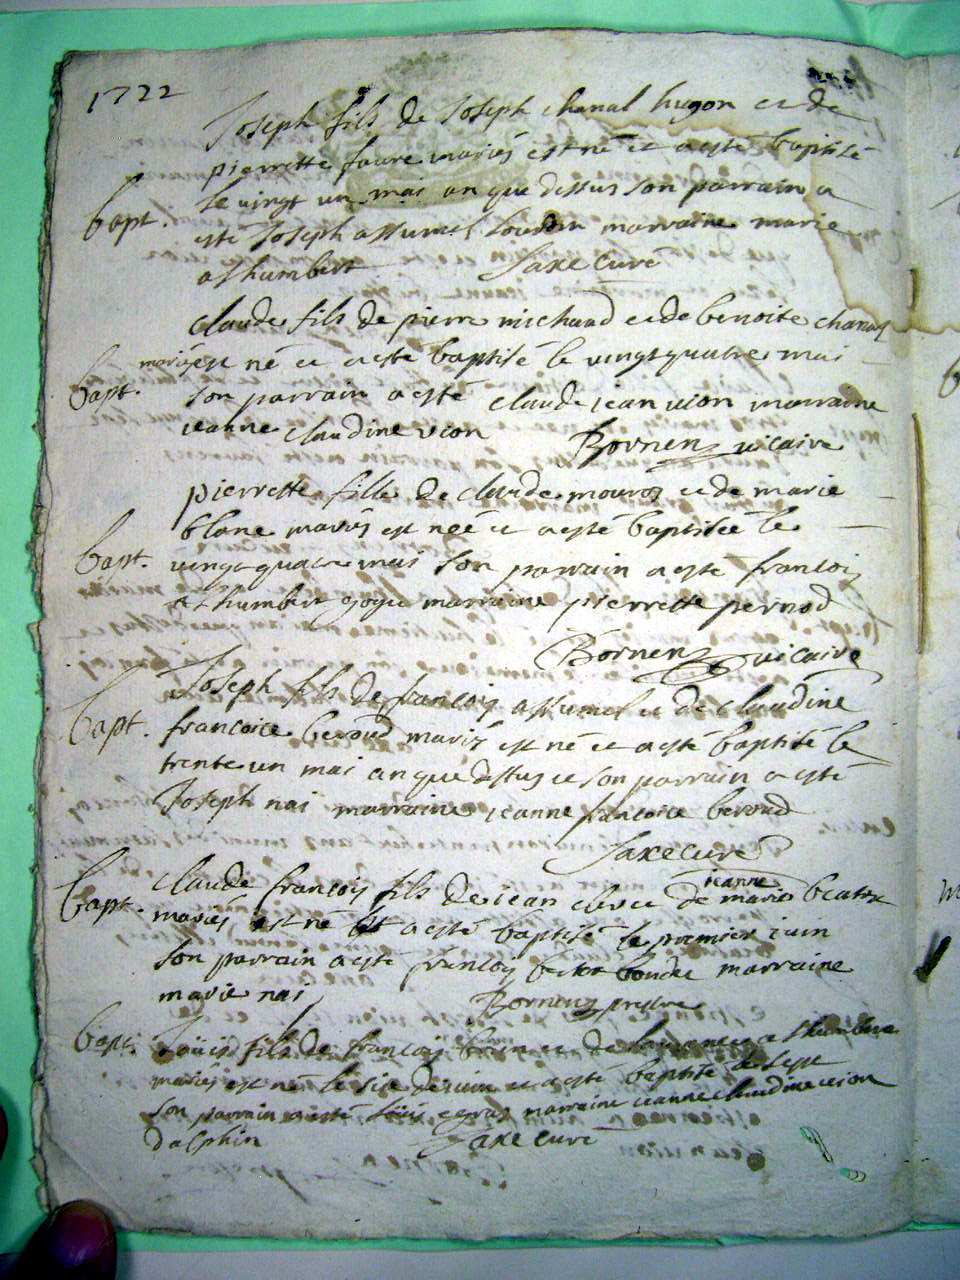 1722
Joseph fils de Joseph chanal hugon et de
pierrette faure mariés est né et a esté baptisé
bapt. le vingt un mai an que dessus son parrain a
esté Joseph assumel marraine marie
a lhumbert Saxe Curé
Claude fils de pierre michaud et de benoite chanal
bapt. mariés est né et a esté baptisé le vingt quatre mai
son parrain a esté claude jean vion marraine
jeanne claudine vion Bornens vicaire
pierrette fille de claude et de marie
blanc mariés est neé et a esté baptisée le
bapt. vingt quatre mai son parrain a esté francois
a lhumbert gogu marraine pierrette pernod
Bornens vicaire
Joseph fils de francois assumel et de claudine
bapt. francoise beroud mariés est né et a esté baptisé le
trente un mai an que dessus et son parrain a esté
Joseph nai marraine jeanne francoise beroud
Saxe Curé
bapt. claude francois fils de jean clerc et de jeanne marie beatrix
mariés est né et a esté baptisé le premier juin
son parrain a esté francois marraine
marie nai Bornens prestre
bapt. Loüis fils de francois et de a lhumbert
mariés est né le six de juin et a esté baptisé le sept
son parrain a esté Loüis marraine jeanne claudine vion
dalphin Saxe Curé